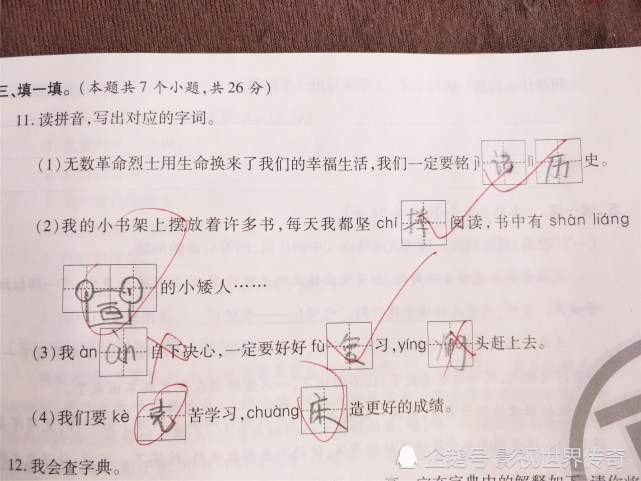 三、填一填。(本题共7个小题,共26分)
11.读拼音,写出对应的字词。
(1)无数革命烈士用生命换来了我们的幸福生活,我们一定要铭 jì 记 lì 历 史。
(2)我的小书架上摆放着许多书,每天我都坚 chí 持 阅读,书中有 shàn liáng
的小矮人……
(3)我 àn an 自下决心,一定要好好 fù 习,yíng 头赶上去。
(4)我们要 kè 克 苦学习,chuàng 床 造更好的成绩。
12.我会查字典。
企鹅号 影视世界传奇